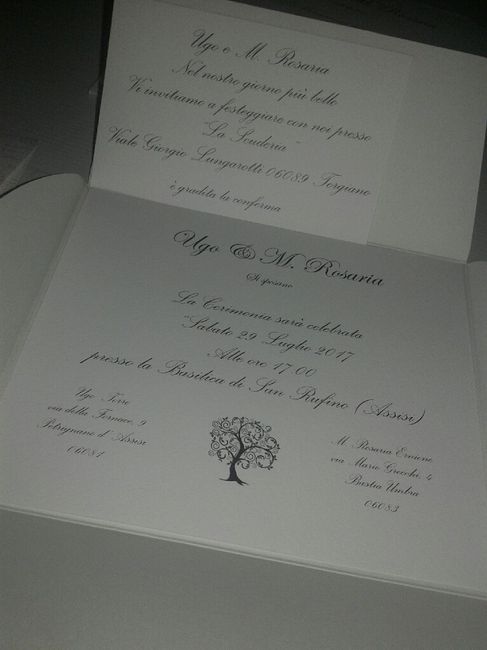 Ugo e M. Rosaria
Nel nostro giorno più bello
Vi invitiamo a festeggiare con noi presso
"La Scuderia"
Viale Giorgio Lungarotti 06089 Torgiano
è gradita la conferma
Ugo & M. Rosaria
Si sposano
La Cerimonia sarà celebrata
"Sabato 29 Luglio 2017
Alle ore 17.00
presso la Basilica di San Rufino (Assisi)
Ugo Torre
via delle Fornace, 9
Petrignano d' Assisi
06081
M. Rosaria
via Mario Grecchi, 4
Bastia Umbra
06083